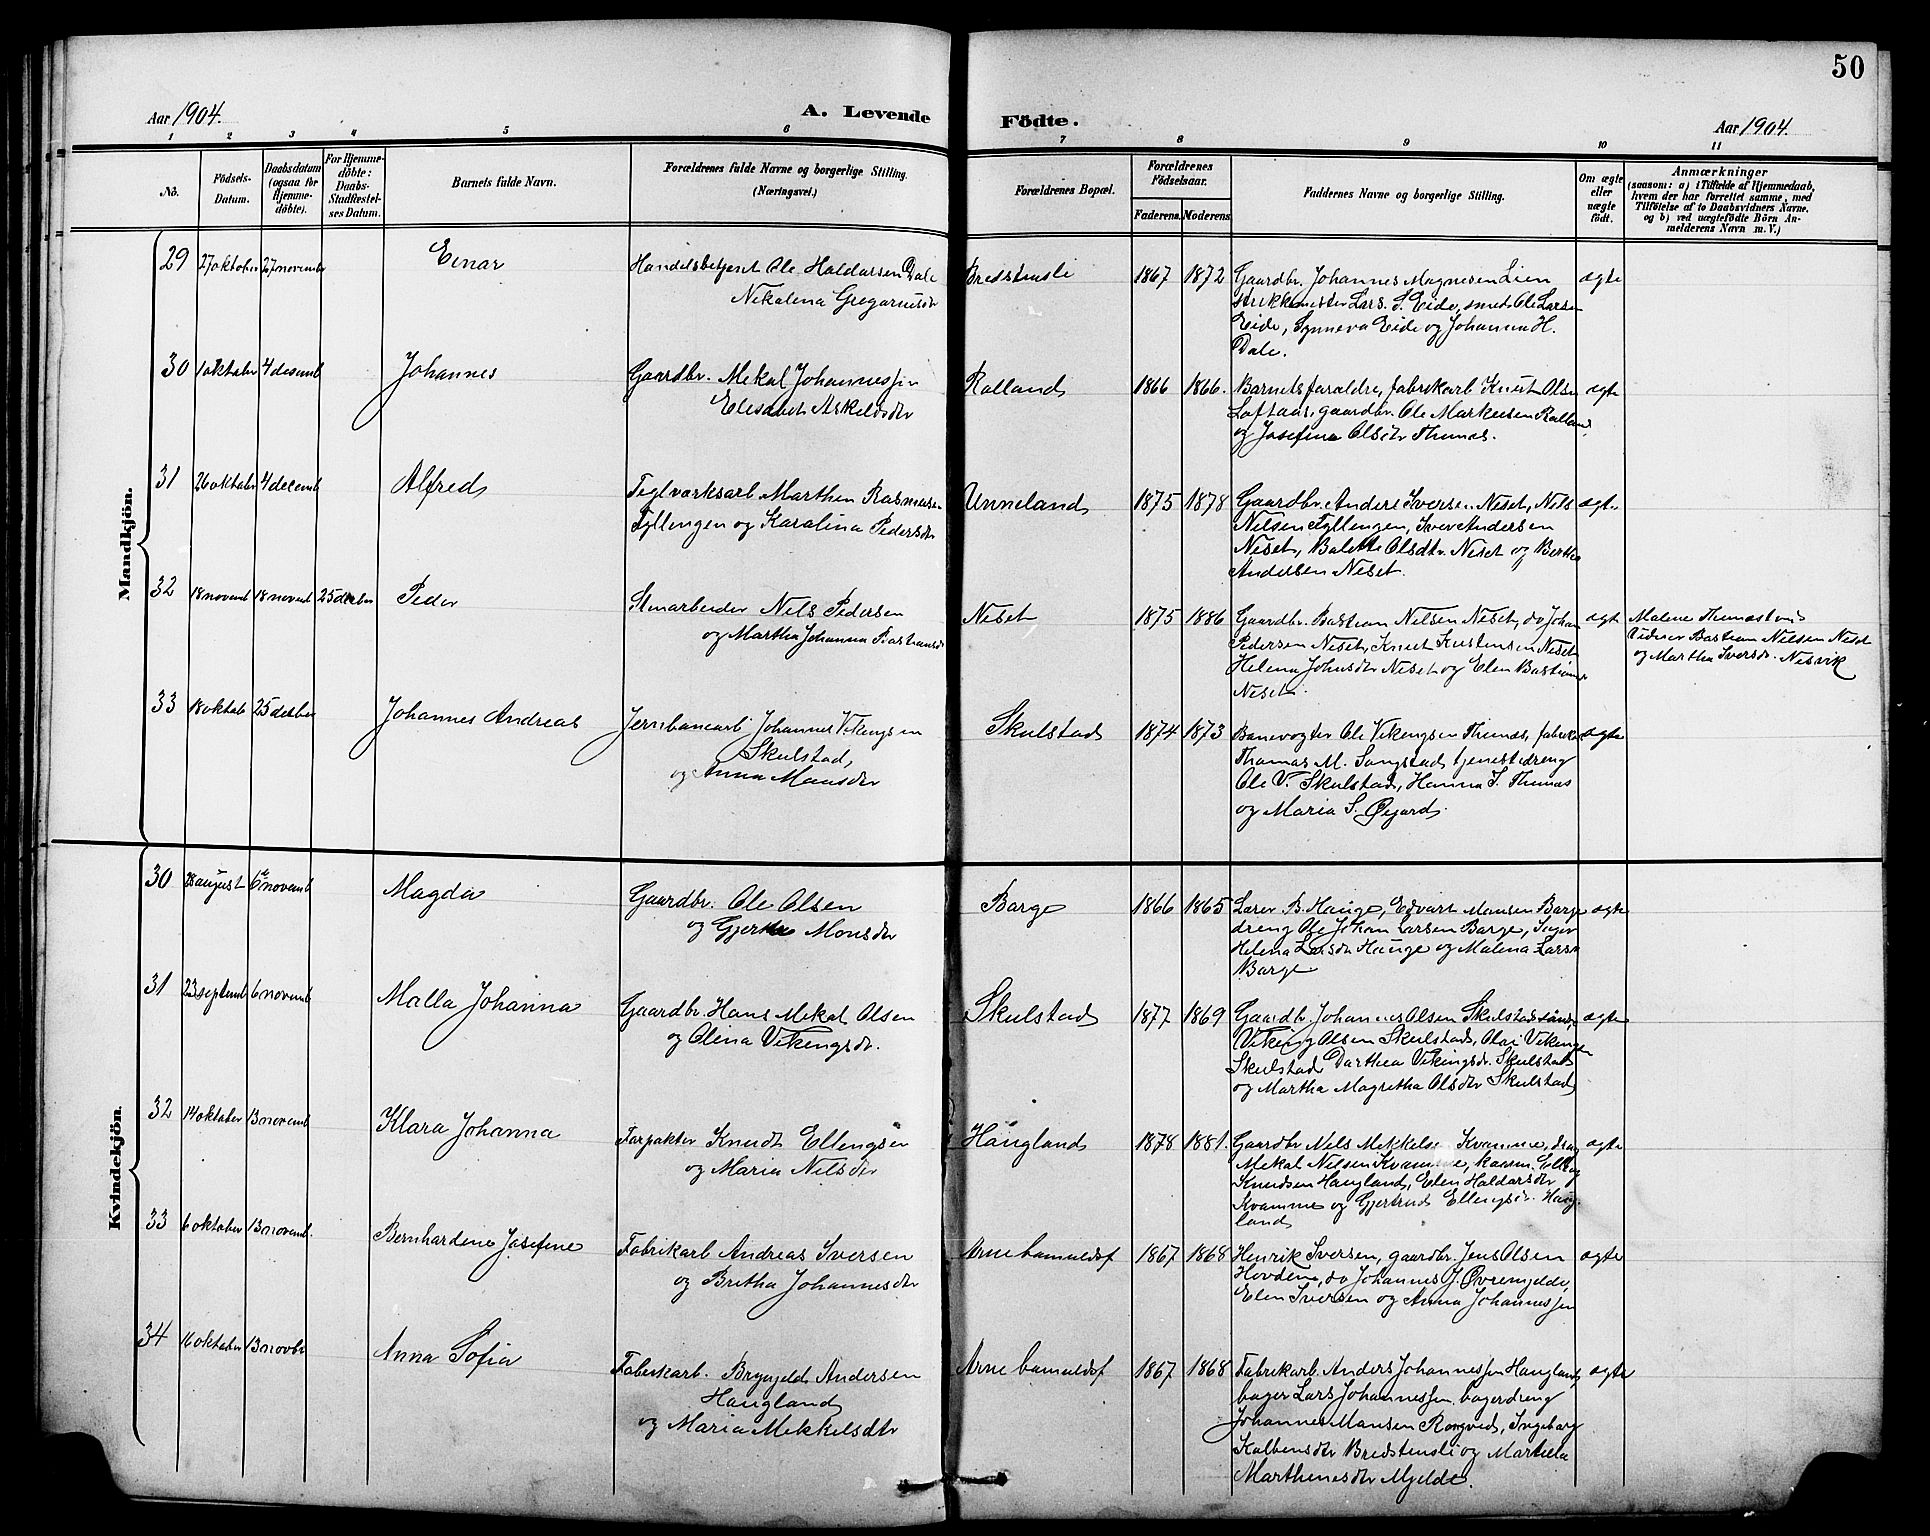 50
Aar 1904.
A. Levende Födte.
Aar 1904.
1 2 3 4 5 6 7 8 9 10 11
Nô.
Födsels-Datum.
Daabsdatum (ogsaa for Hjemme-döbte).
For Hjemme-döbte: Daabs-Stadfæstel-ses Datum.
Barnets fulde Navn.
Forældrenes fulde Navne og borgerlige Stilling. (Næringsvei.)
Forældrenes Bopæl.
Forældrenes Födselsaar.
Faderens. Moderens.
Faddernes Navne og borgerlige Stilling.
Om ægte eller uægte födt.
Anmærkninger
(saasom: a) i Tilfælde af Hjemmedaab,
hvem der har forrettet samme, med
Tilföielse af to Daabsvidners Navne,
og b) ved uægtefödte Börn An-
melderens Navn m. V.)
Mandkjön.
29 27 oktober 27 november Einar
Handelsbetjent Ole Haldorsen Dale
Nekolena Gregoriusdr
Bredstensli 1867 1872
Gaardbr. Johannes Magnesen Lien
strikkemester Lars. S. Eide, smed Ole Larsen
Eide, Synneva Eide og Johanna H.
Dale.
ægte
30 1 oktober 4 desemb Johannes
Gaardbr. Mekal Johannessen
Elesabet Askeldsdtr
Rolland 1866 1866.
Barnets foraldre, fabrikarb Knut Olsn
Loftaas, gaardbr. Ole Markusen Rolland
og Josefine Olsdtr Thunas.
ægte
31 26 oktober 4 decemb Alfred
Teglværksarb Marthen Rasmusen
Tyllengen og Karolina Pedersdr
Unneland 1875 1878
Gaardbr. Anders Iversen Neset, Nils
Nilsen Tyllengen, Iver Andersen
Neset, Balette Olsdtr. Neset og Berthe
Andersen Neset.
ægte
32 18 novemb 18 novemb 25 desber Peder
Stenarbeider Nels Pedersen
og Martha Johanna Bastiansdr
Neset 1875 1886
Gaardbr. Bastian Nilsen Neset, do Johan
Pedersen Neset, Knut Knutsen Neset
Helena Johnsdtr Neset og Elen Bastians
Neset.
ægte
Malene Thomasdr
Vidner Bastian Nilsen Neset
og Martha Iversdr. Nesvik
33 18 oktob 25 desber Johannes Andreas
Jernbanearb Johannes Vikingsen
Skulstad,
og Anna Monsdtr
Skulstad 1874 1873
Banevogter Ole Vikengsen Thunas, fabrika
Thomas M. Songstad tjenestedreng
Ole V. Skulstad, Hanna I. Thunas
og Maria S. Øyjord.
ægte
Kvindekjön.
30 28 august 6te novemb Magda
Gaardbr. Ole Olsen
og Gjertru Monsdtr
Borge 1866 1865
Lærer B. Hauge, Edvart Monsen Borge
dreng Ole Johan Larsen Borge,
Helena Larsdr Hauge og Malena Larsn
Borge
ægte
31 23 septemb 6 novemb Malla Johanna
Gaardbr. Hans Mekal Olsen
og Olina Vikengsdr.
Skulstad 1877 1869
Gaardbr. Johannes Olsen Skulstad
Viking Olsen Skulstad, Olai Vikengsen
Skulstad Darthea Vikingsdr. Skulstad
og Martha Magretha Olsdtr Skulstad
ægte
32 14 oktober 13 novemb Klara Johanna
Forpakter Knudt Ellengsen
og Maria Nilsdtr
Haugland 1878 1881.
Gaardbr Nils Mekkelse Kvamme, dreng
Mekal Nilsen Kvamme, kaarm. Elling
Knudsen Haugland, Elen Haldorsdtr
Kvamme og Gjertrud Ellengsdr. Haug-
land
ægte
33 6 oktober 13 novemb. Bernhardene Josefine
Fabrikarb Andreas Iversen
og Bretha Johannesdtr
Arne bomuldsf 1867 1868
Henrik Iversen, gaardbr. Jens Olsen
Hovden, do Johannes J. Øvremjelde,
Elen Iversen og Anna Johannessen
ægte
34 16 oktober 13 novbr Anna Sofia
Fabrikarb. Brynjeld Andersen
Haugland
og Maria Mekkelsdtr
Arne bomuldsf 1867 1868
Fabrikarb. Anders Johannessen Haugland
bager Lars Johannessen, bagerdreng
Johannes Monsen Romgved, Ingeborg
Kolbensdtr Bredstensli og Martella
Marthenesdtr Mjelde.
ægte